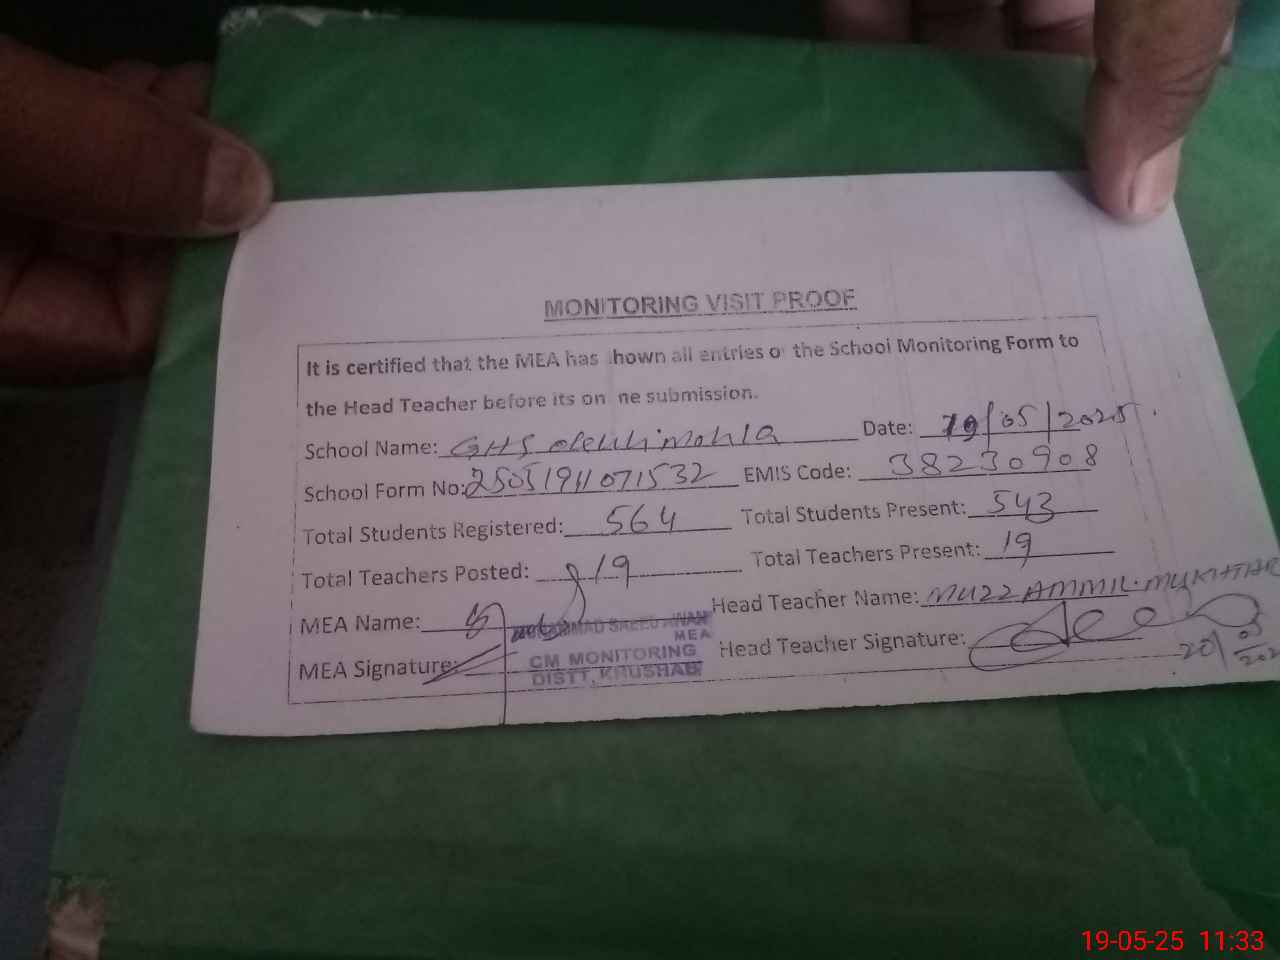 MONITORING VISIT PROOF
It is certified that the MEA has hown all entries o the School Monitoring Form to
the Head Teacher before its on ne submission.
School Name: GHS Date: 19/05/2025.
School Form No: 25051911071532 EMIS Code: 38230908
Total Students Registered: 564 Total Students Present: 543
Total Teachers Posted: 19 Total Teachers Present: 19
MEA Name: Head Teacher Name: MUZZAMMIL MUKHTAR
MEA Signature: Head Teacher Signature:
SAEED AWAN
MEA
CM MONITORING
DISTT, KHUSHAB
19-05-25 11:33